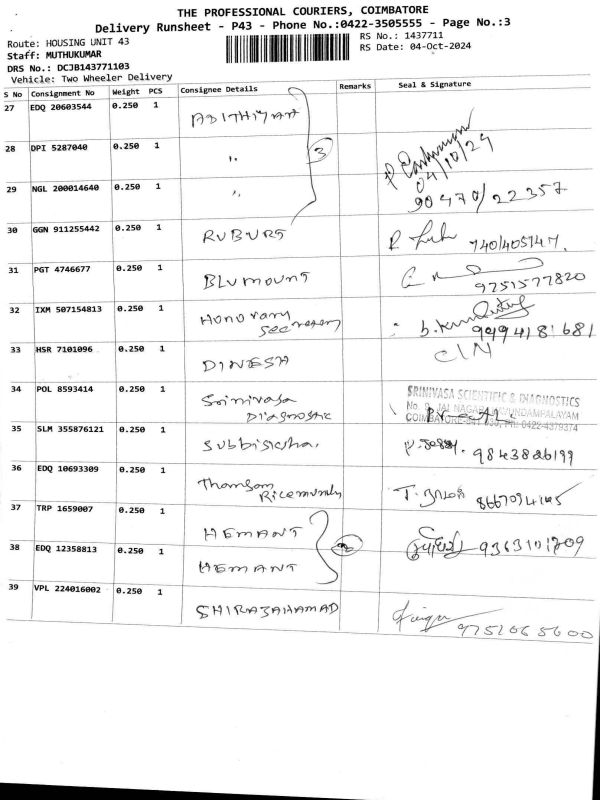 THE PROFESSIONAL COURIERS, COIMBATORE
Delivery Runsheet - P43 - Phone No.:0422-3505555 - Page No.:3
Route: HOUSING UNIT 43
RS No.: 1437711
Staff: MUTHUKUMAR
RS Date: 04-Oct-2024
DRS No.: DCJB143771103
Vehicle: Two Wheeler Delivery
S No Consignment No Weight PCS Consignee Details Remarks Seal & Signature
27 EDQ 20603544 0.250 1 ADITHIYAA
28 DPI 5287040 0.250 1 " 3
04/10/24
29 NGL 200014640 0.250 1 " 90470/22357
30 GGN 911255442 0.250 1 RUBURT 740/405747.
31 PGT 4746677 0.250 1 BLUMOUNT 9751577820
32 IXM 507154813 0.250 1 Honorary
Secretary 9494181681
33 HSR 7101096 0.250 1 DINESH C/N
34 POL 8593414 0.250 1 Srinivasa
Diagnostic
SRINIVASA SCIENTIFIC & DIAGNOSTICS
35 SLM 355876121 0.250 1 Subbiksha. 9843826199
36 EDQ 10693309 0.250 1 Thomson
Ricemundy T. ராமர்
37 TRP 1659007 0.250 1 HEMANT
38 EDQ 12358813 0.250 1 HEMANT 9363101209
39 VPL 224016002 0.250 1 SHIRAJAHAMAD 9752665600